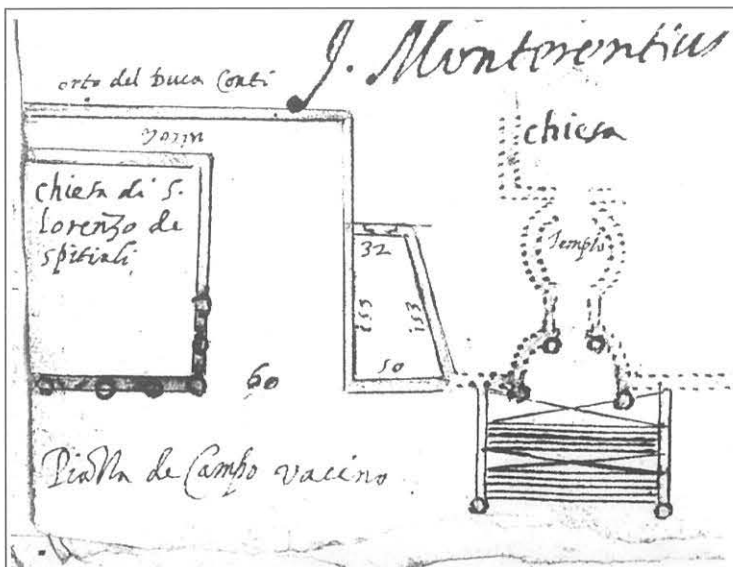 J. Monterentius
orto del Duca Conti
chiesa
chiesa di S.
Lorenzo de
spitiali
Templo
32
153
153
50
60
Piazza de Campo vacino